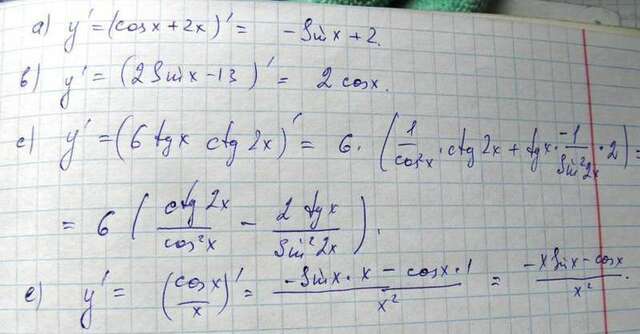 a) y' = (cosx + 2x)' = -Sinx + 2.
b) y' = (2Sinx - 13)' = 2cosx.
c) y' = (6tgx ctg2x)' = 6·(1/cos²x · ctg2x + tgx · -1/Sin²2x · 2) =
= 6(ctg2x/cos²x - 2tgx/Sin²2x).
e) y' = (cosx/x)' = (-Sinx·x - cosx·1)/x² = (-xSinx - cosx)/x².